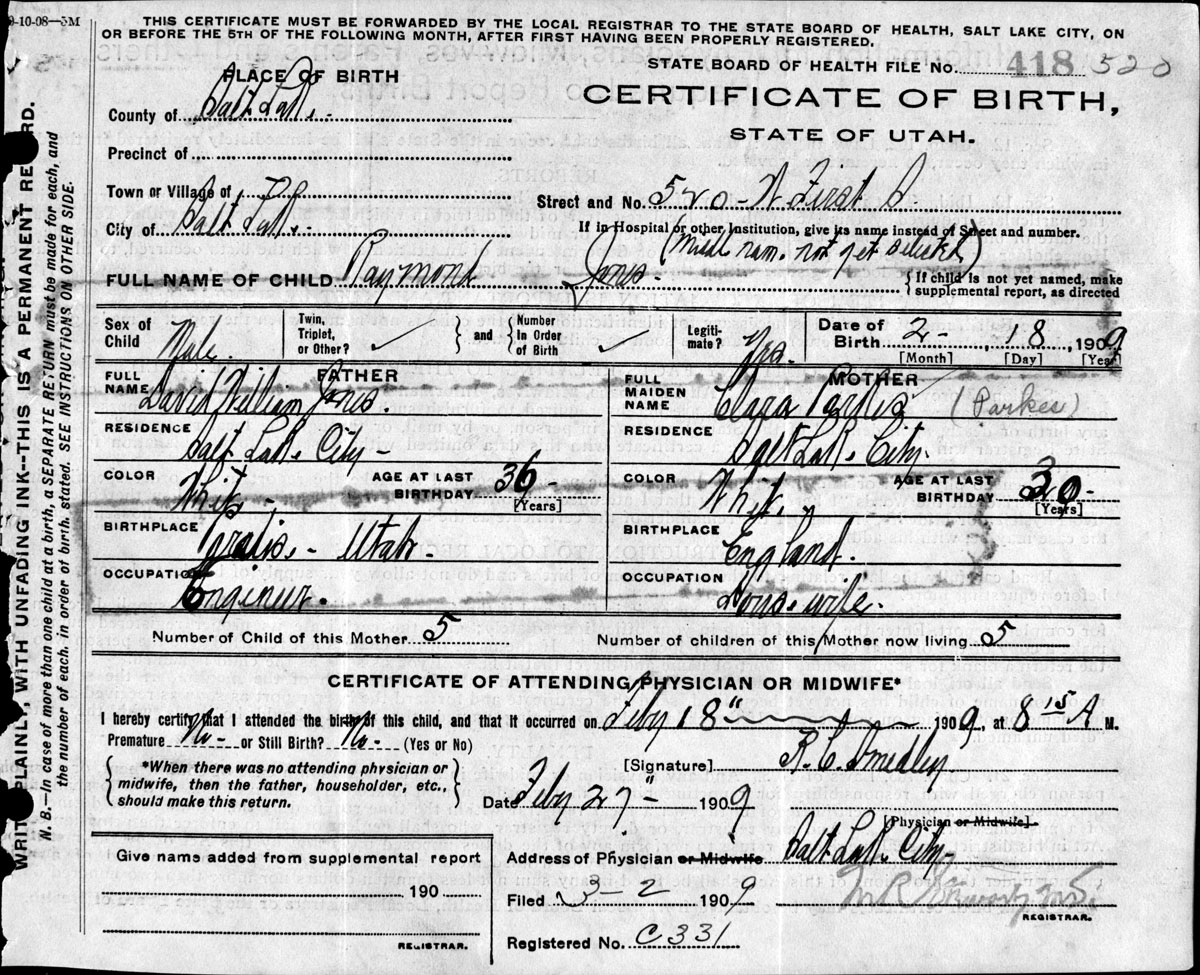 9-10-08—5M
THIS CERTIFICATE MUST BE FORWARDED BY THE LOCAL REGISTRAR TO THE STATE BOARD OF HEALTH, SALT LAKE CITY, ON
OR BEFORE THE 5TH OF THE FOLLOWING MONTH, AFTER FIRST HAVING BEEN PROPERLY REGISTERED.
STATE BOARD OF HEALTH FILE No. 418 520
PLACE OF BIRTH
CERTIFICATE OF BIRTH,
STATE OF UTAH.
County of Salt Lake.
Precinct of
Town or Village of
Street and No. 520 - N First
City of Salt Lake
If in Hospital or other Institution, give its name instead of Street and number.
(Middle name not yet selected)
FULL NAME OF CHILD Raymond Jones. {If child is not yet named, make supplemental report, as directed
Sex of Child Male. Twin, Triplet, or Other? ✓ } and { Number In Order of Birth ✓ Legiti-mate? Yes. Date of Birth 2 - , 18 , 1909
[Month] [Day] [Year]
FATHER
FULL NAME David William Jones.
RESIDENCE Salt Lake City -
COLOR White AGE AT LAST BIRTHDAY 36 - [Years]
BIRTHPLACE Paradise - Utah -
OCCUPATION Engineer.
MOTHER
FULL MAIDEN NAME Clara Parkes (Parkes)
RESIDENCE Salt Lake City.
COLOR White AGE AT LAST BIRTHDAY 30 - [Years]
BIRTHPLACE England.
OCCUPATION Housewife.
Number of Child of this Mother 5 Number of children of this Mother now living 5
CERTIFICATE OF ATTENDING PHYSICIAN OR MIDWIFE*
I hereby certify that I attended the birth of this child, and that it occurred on Feby 18" 1909, at 8 15 A M.
Premature No - or Still Birth? No - (Yes or No)
{ *When there was no attending physician or midwife, then the father, householder, etc., should make this return. }
[Signature] R. C. Smedley
Date Feby 27" - 1909
[Physician or Midwife]
Give name added from supplemental report
190
REGISTRAR.
Address of Physician or Midwife Salt Lake City -
Filed 3 - 2 1909
REGISTRAR.
Registered No. C331
WRITE PLAINLY, WITH UNFADING INK--THIS IS A PERMANENT RECORD.
N. B.—In case of more than one child at a birth, a SEPARATE RETURN must be made for each, and
the number of each, in order of birth, stated. SEE INSTRUCTIONS ON OTHER SIDE.